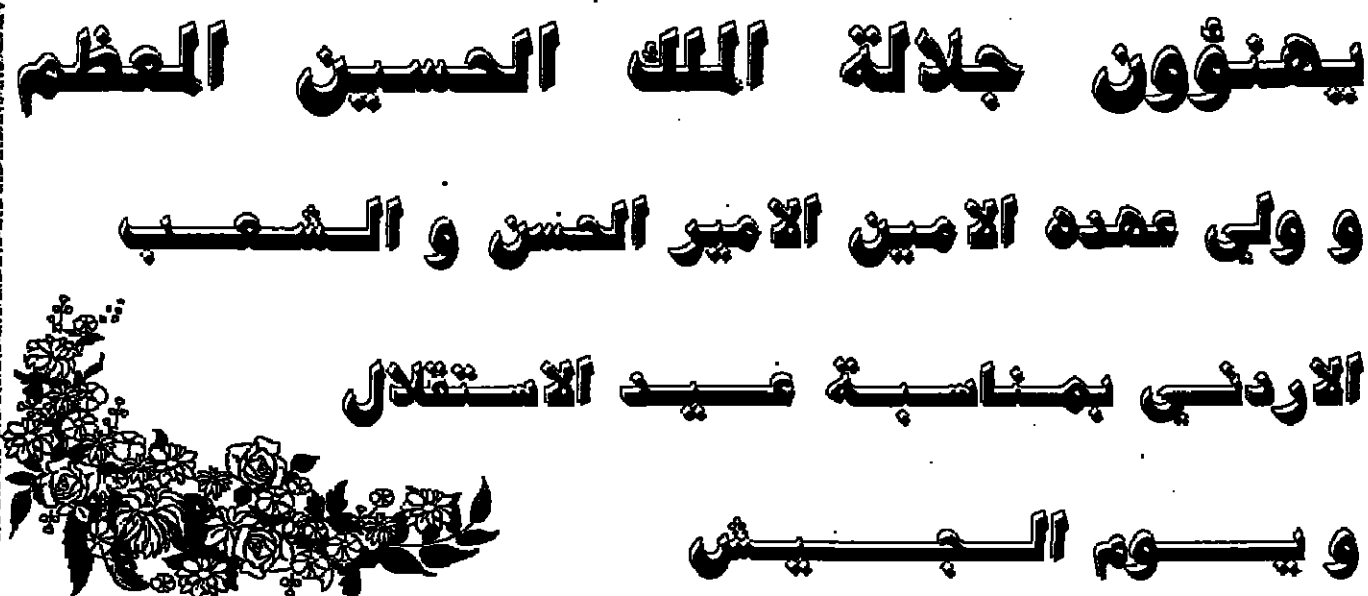 يهنؤون جلالة الملك الحسين العظم
و ولي عهده الامين الامير الحسن و الشعب
الاردني بمناسبة عيد الاستقلال
و يوم الجيش